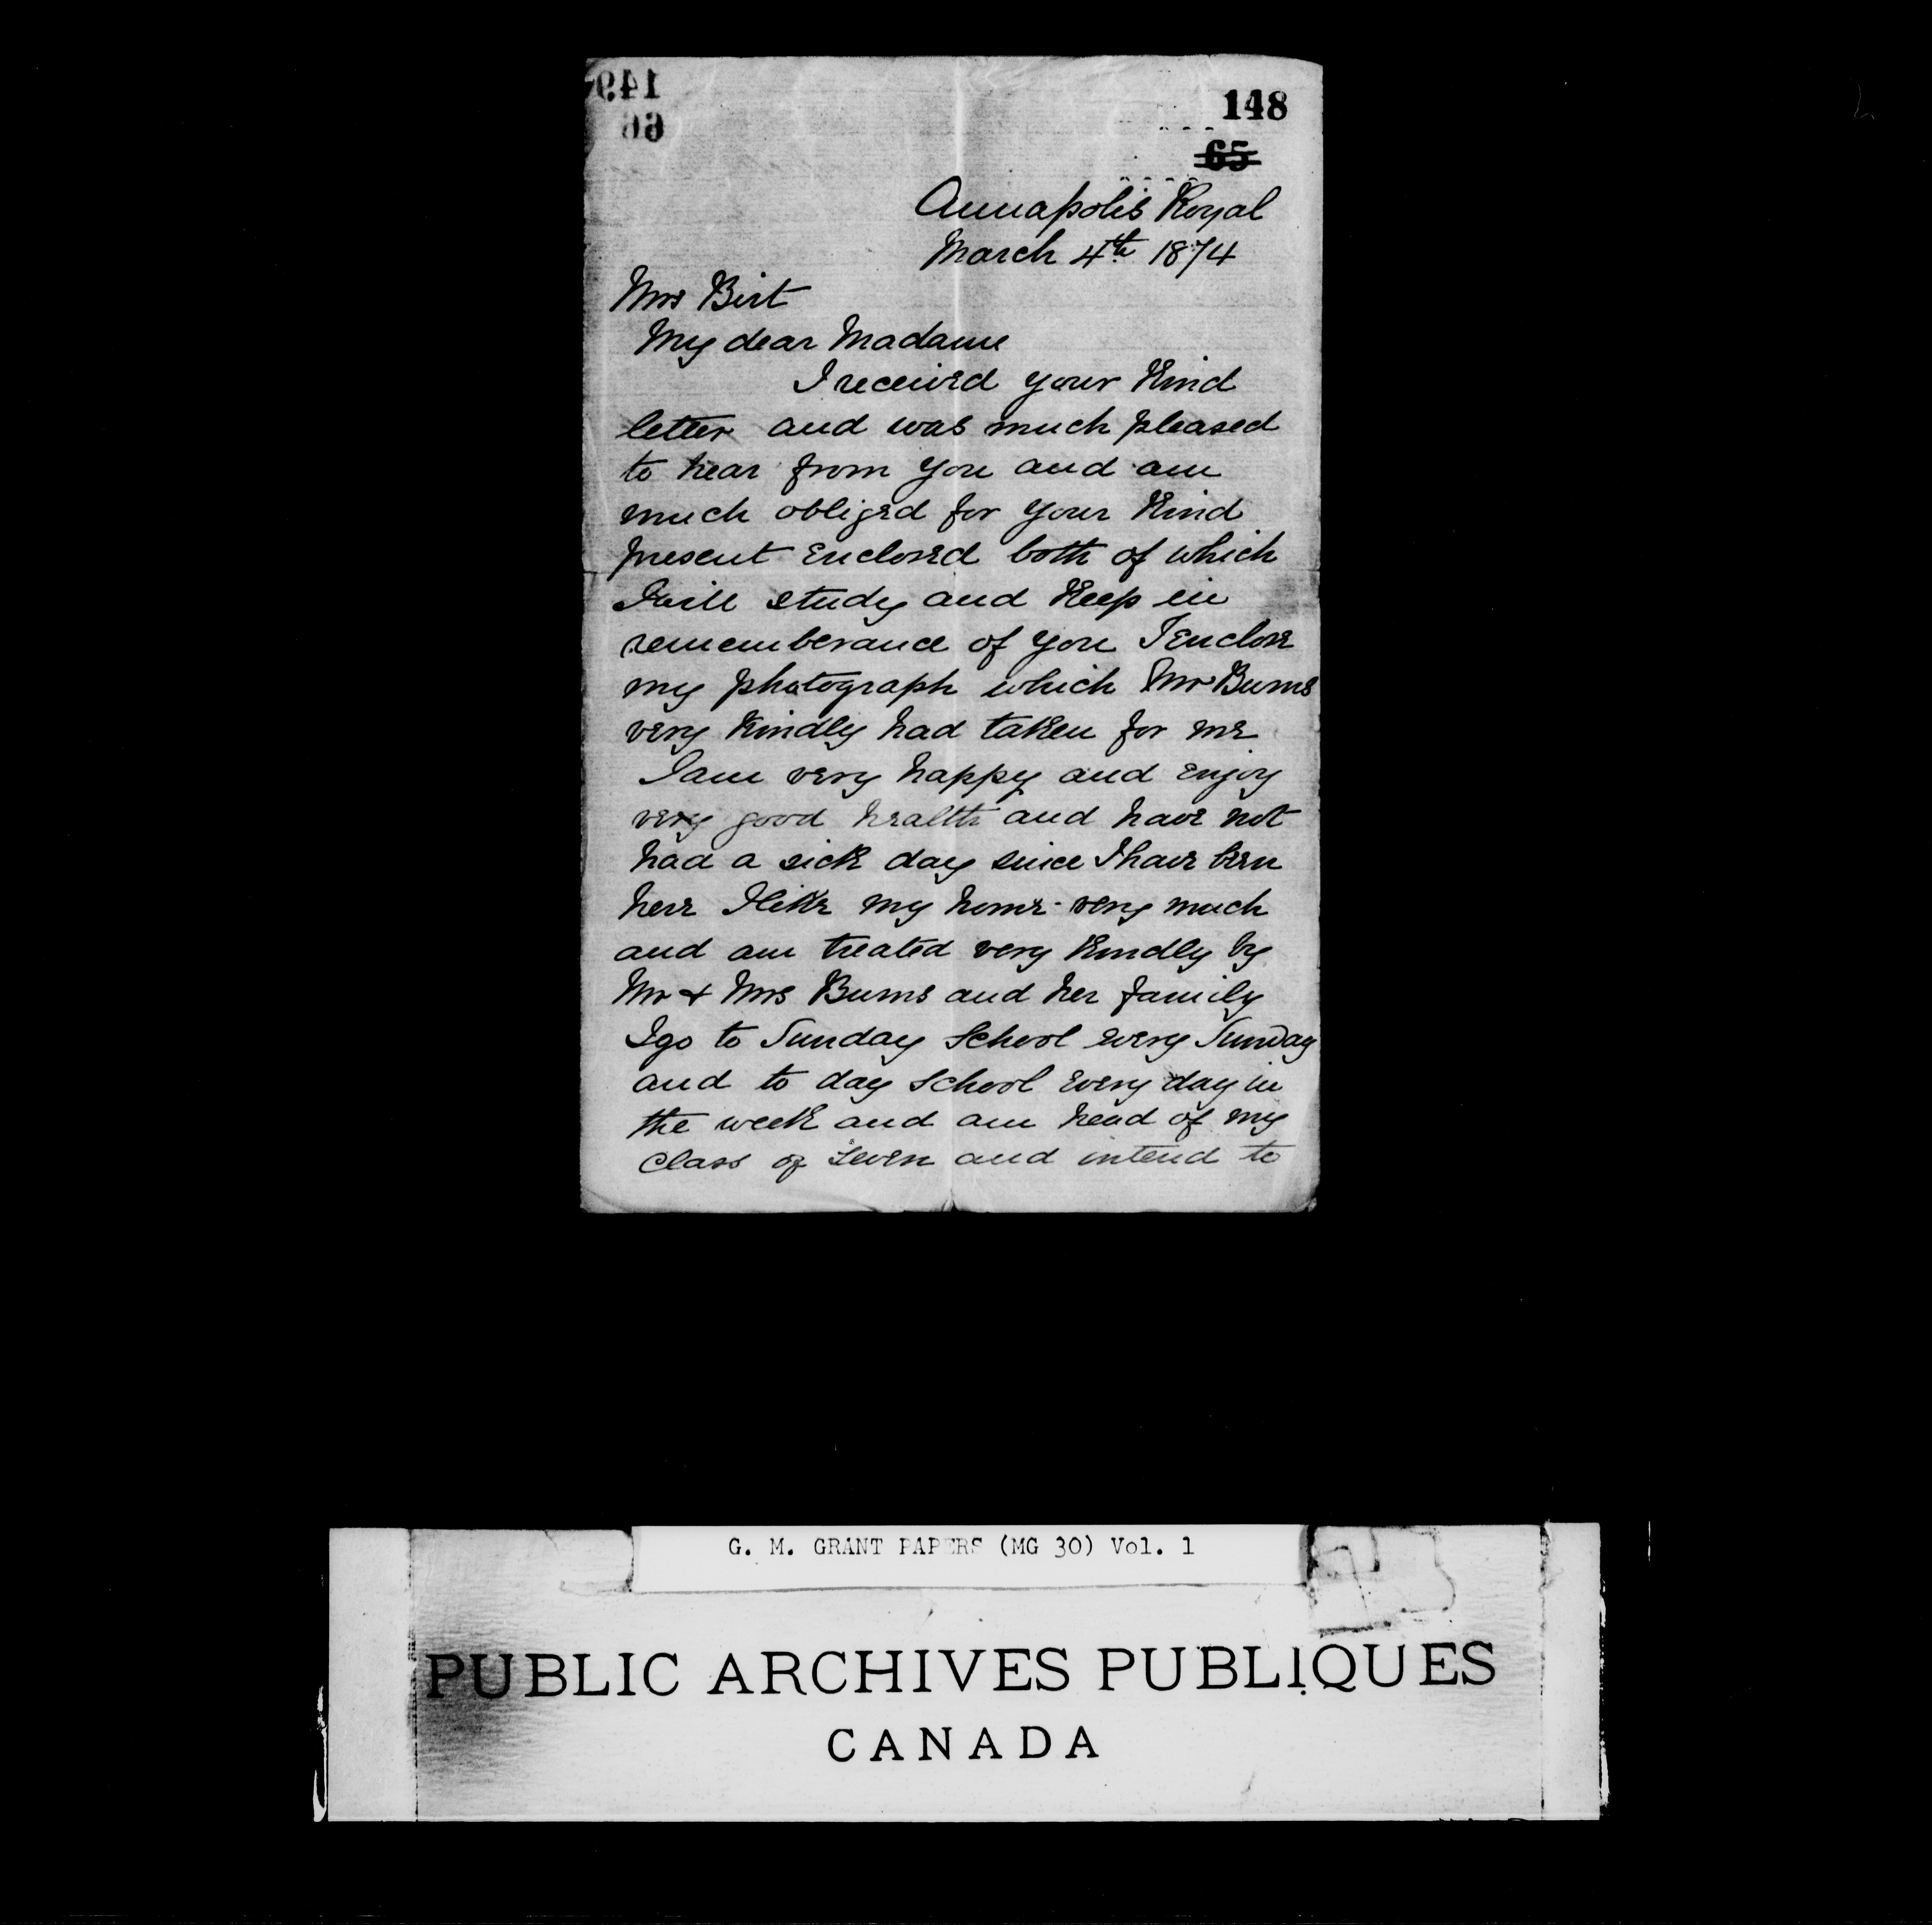 149
66
148
65
Annapolis Royal
March 4th 1874
Mrs Birt
My dear Madame
I received your Kind
letter and was much pleased
to hear from you and am
much obliged for your Kind
present Enclosed both of which
I will study and Keep in
rememberance of you I Enclose
my photograph which Mr Burns
very Kindly had taken for me
I am very happy and Enjoy
very good health and have not
had a sick day since I have been
here I like my home very much
and am treated very Kindly by
Mr & Mrs Burns and her family
I go to Sunday School every Sunday
and to day School Every day in
the week and am head of my
Class of Seven and intend to
G. M. GRANT PAPERS (MG 30) Vol. 1
PUBLIC ARCHIVES PUBLIQUES
CANADA